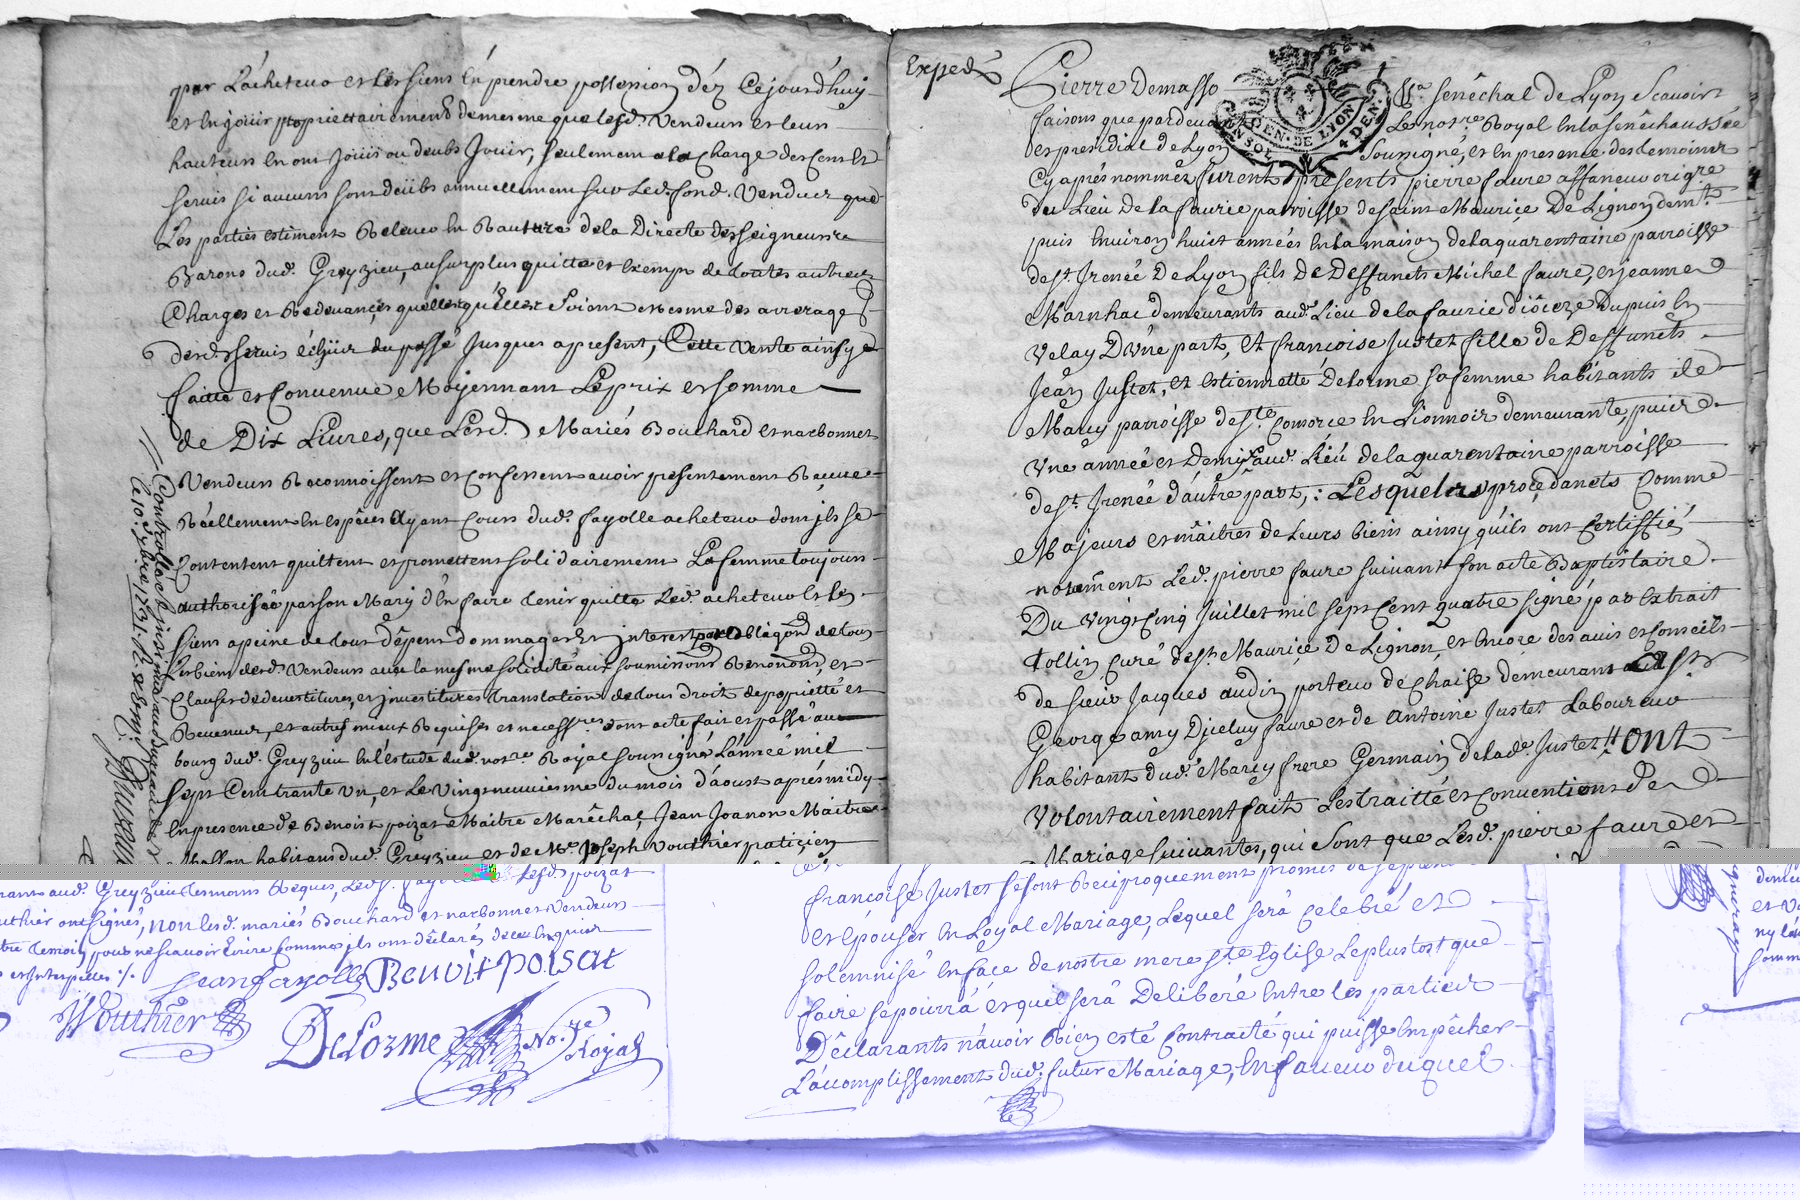 par L'acheteur et les siens en prendre possession déz Cejourd'huy
et en jouir proprietairement demesme que lesd. Vendeurs et leurs
hauteurs en ont Joüis ou deubs Jouir, seulement a la Charge des Cens et
servis si aucuns sont deübs annuellement sur Led. fond. Vendues que
Les parties estiment Relever en Roture dela Directe des seigneurs
Barons dud. Greyzieu, au surplus quitte et exempt de toutes autres
Charges et Redevances quelles qu'elles soient mesme des arrerages
desd. servis échüs du passé Jusques apresent, Cette Vente ainsy
faitte et Convenue Moyennant Le prix et somme
de Dix Livres, que Lesd. Mariés Bouchard et narbonnet
Vendeurs Reconnoissent et Confessent avoir presentement Receue
Réellement en espêces Ayant Cours dud. fayolle acheteur dont jls se
Contentent quittent et promettent solidairement La femme toujours
authorisée par son Mary d'En faire tenir quitte Led. acheteur et les
siens apeine de tous dépens dommages et interest par obligaon de tous
Les biens desd. Vendeurs avec la mesme solidité aux soumissions Renonons, et
Clauses de devestitures, et jnvestitures Translation de tous droit de proprietté et
Revenus, et autres mieux Requises et necessres dont acte fait et passé au
bourg dud. Greyzieu En l'étude dud. notre Royal soussigné L'année mil
sept Cent trante un, et Le vingt neuvieme du mois d'aoust aprés midy
En presence de Benoist poizat Maitre Maréchal, Jean Joanon Maitre
Masson habitans dud. Greyzieu et de Mre Joseph Vouthier praticien
aud. Greyzieu temoins Requis, Led. fayolle Lesd. poizat
Vouthier ont signés, non lesd. mariés Bouchard et narbonnet Vendeurs
temoin pour ne scavoir Ecrire Comme jls ont déclaré de ce Enquis
et Interpellés ./.
Jean fayolle Benoit poisat
Vouthier
DeLorme No.re Royal
Expedé
Pierre Demasso Sénêchal de Lyon Scavoir
faisons que pardevant Le notre Royal en la sênêchaussée
et presidial de Lyon soussigné, et en presence des temoins
Cy aprés nommés furent presents pierre faure affaneur origre
du Lieu de la faurie parroisse de saint Maurice De Lignon demt
puis Environ huict années en la maison de la quarentaine parroisse
de st Irenée De Lyon fils De Deffuncts Michel faure, et jeanne
Marnhac demeurants aud. Lieu de la faurie diôceze du puis en
Velay D'vne part, Et francoise Justet fille de Deffuncts
Jean Justet, Et Estiennette Delorme sa femme habitants de
Marcy parroisse de ste Consorce en Lionnois demeurante, puis
Vne année et Demy aud. Lieu de la quarentaine parroisse
de st Irenée d'autre part, : Lesquelles procedants Comme
Majeurs et mâitres de Leurs biens ainsy qu'ils ont Certiffié
notament Led. pierre faure suivant son acte Baptistaire
Du vingt Cinq Juillet mil sept Cent quatre signé par extrait
Tollin Curé de st Maurice De Lignon, et encore des avis et Conseils
de sieur Jacques audin porteur de Chaise demeurant
George amy Dicluy faure et de Antoine Justet Laboureur
habitant dud. Marcy frere Germain de lade Justet !! ont
Volontairement fait Les traitté et Conventions De
Mariage suivantes, qui sont que Lesd. pierre faure et
francoise Justet se sont Reciproquement promis de se prendre
et Epouser en Loyal Mariage, Lequel serâ Celebré et
solemnisé en face de nostre mere ste Eglise Le plustost que
faire se pourrâ et quil serâ Deliberé Entre Les parties
Dêclarants n'âvoir Rien esté Contracté qui puisse Empêcher
L'accomplissement dud. futur Mariage, En faveur duquel